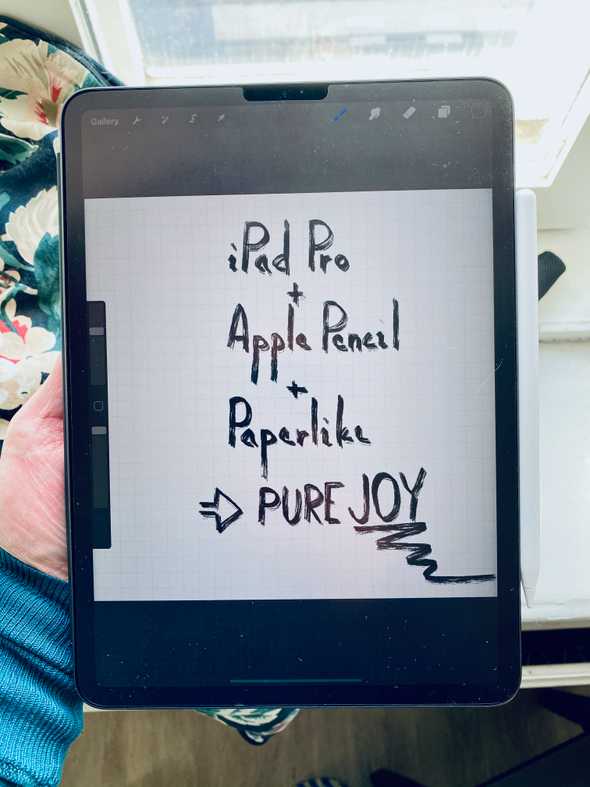 Gallery
iPad Pro
+
Apple Pencil
+
Paperlike
⇒ PURE JOY